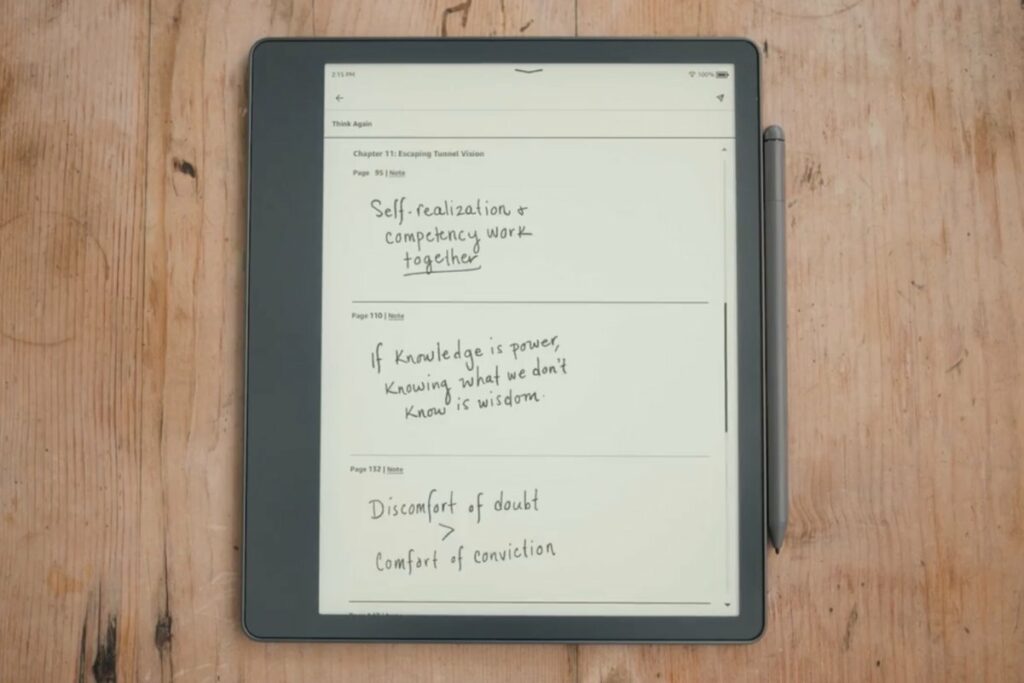 2:15 PM 100%
Think Again
Chapter 11: Escaping Tunnel Vision
Page 95 | Note
Self-realization &
competency work
together
Page 110 | Note
If Knowledge is power,
Knowing what we don't
Know is wisdom.
Page 132 | Note
Discomfort of doubt
>
Comfort of conviction